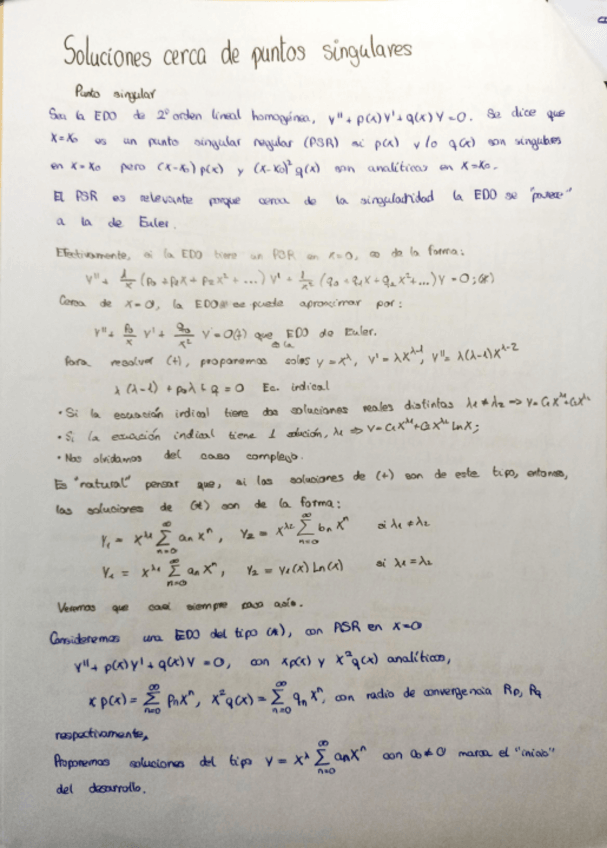 Soluciones cerca de puntos singulares
Punto singular
Sea la EDO de 2º orden lineal homogénea, y'' + p(x)y' + q(x)y = 0. Se dice que
x = x₀ es un punto singular regular (PSR) si p(x) y/o q(x) son singulares
en x = x₀ pero (x-x₀)p(x) y (x-x₀)² q(x) son analíticas en x = x₀.
El PSR es relevante porque cerca de la singularidad la EDO se "parece"
a la de Euler.
Efectivamente, si la EDO tiene un PSR en x=0, es de la forma:
y'' + 1/x (p₀ + p₁x + p₂x² + ...) y' + 1/x² (q₀ + q₁x + q₂x² + ...) y = 0; (*)
Cerca de x = 0, la EDO se puede aproximar por:
y'' + p₀/x y' + q₀/x² y = 0 (+) que es la EDO de Euler.
Para resolver (+), proponemos soles y = x^λ, y' = λx^(λ-1), y'' = λ(λ-1)x^(λ-2)
λ(λ-1) + p₀λ + q = 0 Ec. indicial
• Si la ecuación indicial tiene dos soluciones reales distintas λ₁ ≠ λ₂ ⇒ y = C₁x^λ₁ + C₂x^λ₂
• Si la ecuación indicial tiene 1 solución, λ₁ ⇒ y = C₁x^λ₁ + C₂x^λ₁ Ln x;
• Nos olvidamos del caso complejo.
Es "natural" pensar que, si las soluciones de (+) son de este tipo, entonces,
las soluciones de (*) son de la forma:
y₁ = x^λ₁ ∑_{n=0}^∞ aₙ xⁿ, y₂ = x^λ₂ ∑_{n=0}^∞ bₙ xⁿ si λ₁ ≠ λ₂
y₁ = x^λ₁ ∑_{n=0}^∞ aₙ xⁿ, y₂ = y₁(x) Ln(x) si λ₁ = λ₂
Veremos que casi siempre pasa así.
Consideremos una EDO del tipo (*), con PSR en x=0
y'' + p(x)y' + q(x)y = 0, con xp(x) y x²q(x) analíticas,
x p(x) = ∑_{n=0}^∞ pₙ xⁿ, x² q(x) = ∑_{n=0}^∞ qₙ xⁿ, con radio de convergencia Rp, Rq
respectivamente,
Proponemos soluciones del tipo y = x^λ ∑_{n=0}^∞ aₙxⁿ con a₀ ≠ 0 marca el "inicio"
del desarrollo.